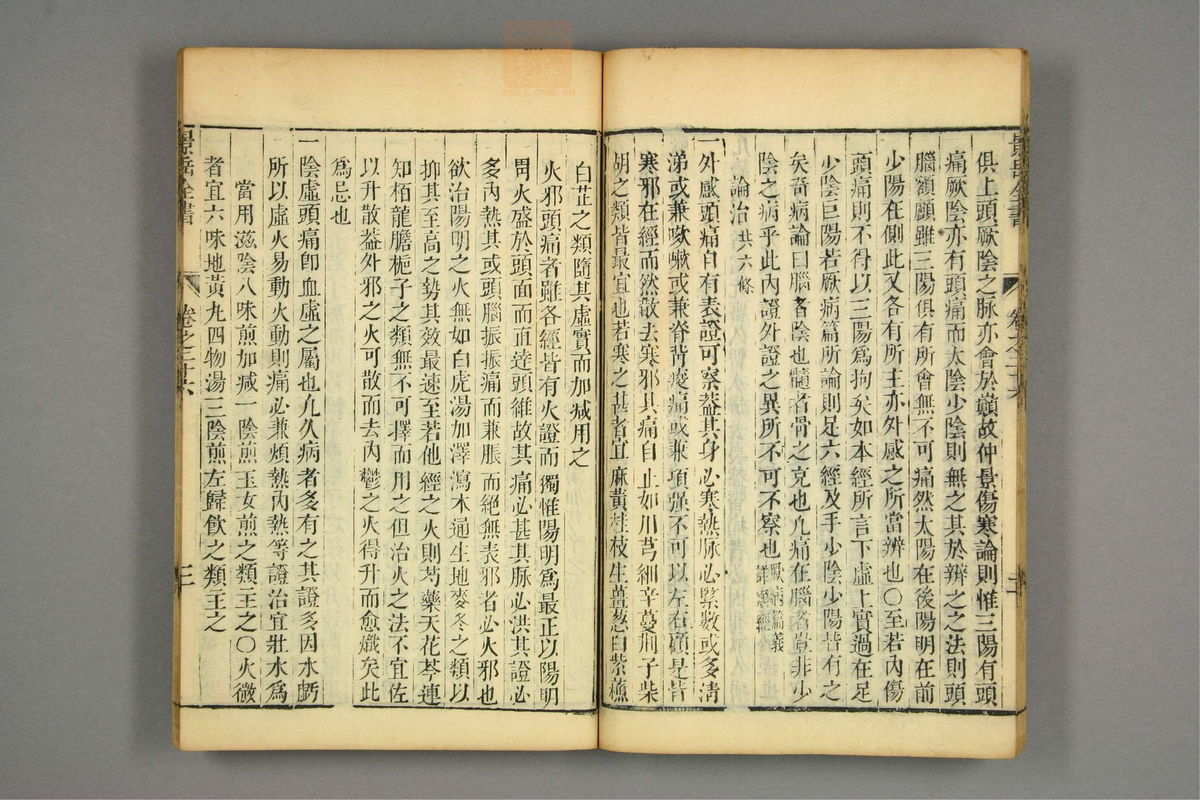 俱上頭厥陰之脉亦會於巔故仲景傷寒論則惟三陽有頭
痛厥陰亦有頭痛而太陰少陰則無之其於辨之之法則頭
腦額顱雖三陽俱有所會無不可痛然太陽在後陽明在前
少陽在側此又各有所主亦外感之所當辨也〇至若內傷
頭痛則不得以三陽爲拘矣如本經所言下虛上實過在足
少陰巨陽若厥病篇所論則足六經及手少陰少陽皆有之
矣奇病論曰腦者陰也髓者骨之充也凡痛在腦者豈非少
陰之病乎此內證外證之異所不可不察也厥病篇義詳類經
論治共六條
一外感頭痛自有表證可察葢其身必寒熱脉必緊數或多清
涕或兼欬嗽或兼脊背痠痛或兼項强不可以左右顧是皆
寒邪在經而然散去寒邪其痛自止如川芎細辛蔓荆子柴
胡之類皆最宜也若寒之甚者宜麻黃桂枝生薑葱白紫蘇
白芷之類隨其虛實而加減用之
火邪頭痛者雖各經皆有火證而獨惟陽明爲最正以陽明
胃火盛於頭面而直達頭維故其痛必甚其脉必洪其證必
多內熱其或頭腦振振痛而兼脹而絕無表邪者必火邪也
欲治陽明之火無如白虎湯加澤瀉木通生地麥冬之類以
抑其至高之勢其效最速至若他經之火則芍藥天花芩連
知栢龍膽梔子之類無不可擇而用之但治火之法不宜佐
以升散葢外邪之火可散而去內鬱之火得升而愈熾矣此
爲忌也
一陰虛頭痛卽血虛之屬也凡久病者多有之其證多因水虧
所以虛火易動火動則痛必兼煩熱內熱等證治宜壯水爲
當用滋陰八味煎加減一陰煎玉女煎之類主之〇火微
者宜六味地黃丸四物湯三陰煎左歸飲之類主之
景岳全書
卷之二十六
二
景岳全書
卷之二十六
三